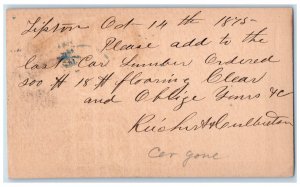 Lipton Oct 14th 1875-
Please add to the
last Car Lumber Ordered
200 ft 18 ft flooring Clear
and Oblige Yours &c
Reichert & Culbertson
Car gone